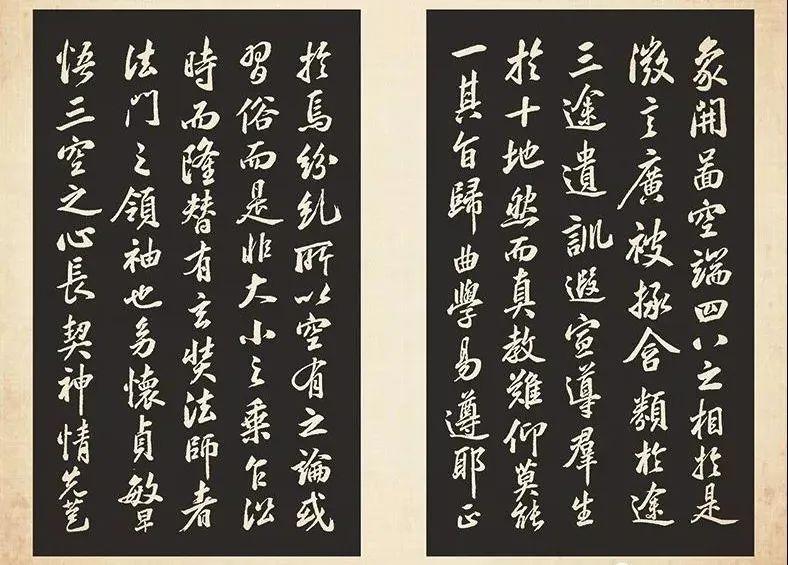 象開啚空端四八之相於是
微言廣被拯含類於途
三途遺訓遐宣導羣生
於十地然而真教難仰莫能
一其旨歸曲學易遵耶正
於焉紛糺所以空有之論或
習俗而是非大小之乘乍沿
時而隆替有玄奘法師者
法門之領袖也幼懷貞敏早
悟三空之心長契神情先苞